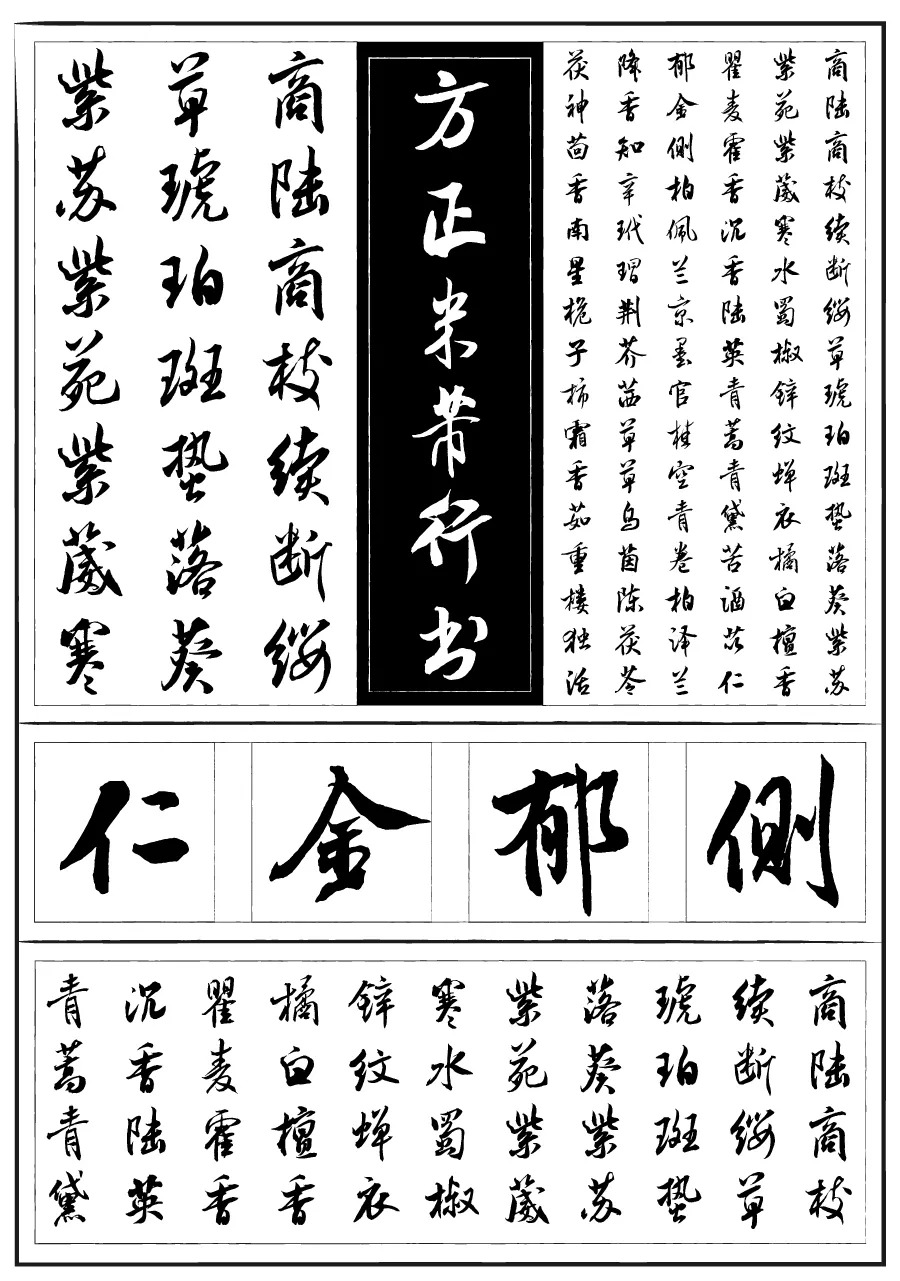 商陆商枝续断缨草琥珀斑蛰落葵紫苏
紫苑紫葳寒水蜀椒锌纹蝉衣橘白檀香
瞿麦霍香沉香陆英青蒿青黛苦酒苡仁
郁金侧柏佩兰京墨官桂空青卷柏泽兰
降香知辛玳瑁荆芥茜草草乌茵陈茯苓
茯神茴香南星桅子柿霜香茹重楼独活
方正米芾行书
商陆商枝续断缨
草琥珀斑蛰落葵
紫苏紫苑紫葳寒
侧郁金仁
商陆商枝
续断缨草
琥珀斑蛰
落葵紫苏
紫苑紫葳
寒水蜀椒
锌纹蝉衣
橘白檀香
瞿麦霍香
沉香陆英
青蒿青黛